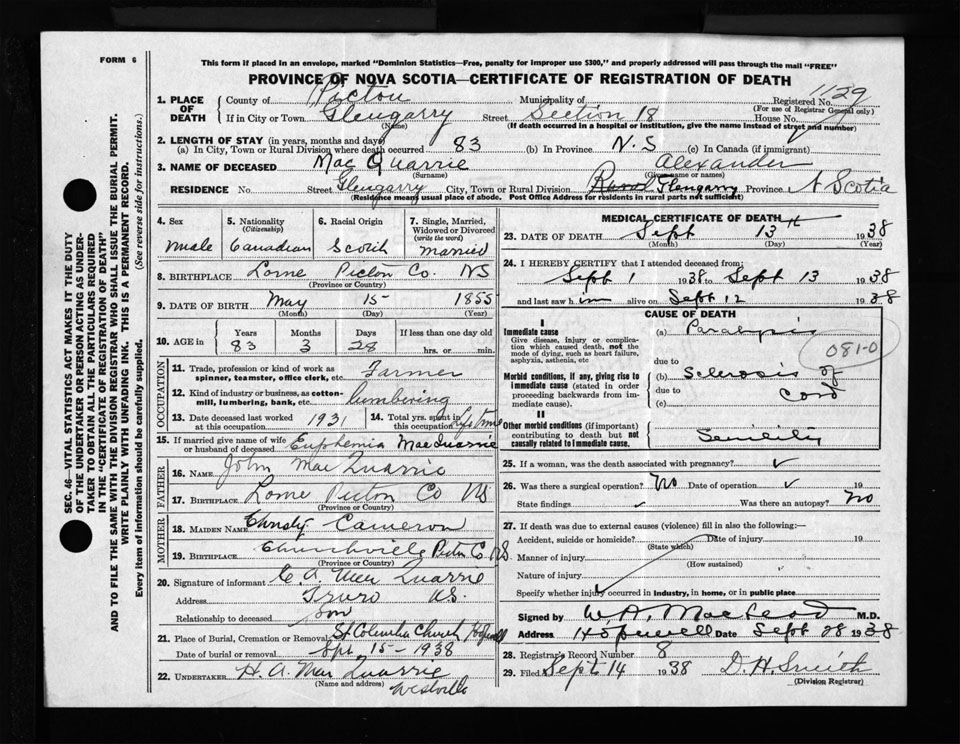 FORM 6
This form if placed in an envelope, marked "Dominion Statistics—Free, penalty for improper use $300," and properly addressed will pass through the mail "FREE"
PROVINCE OF NOVA SCOTIA—CERTIFICATE OF REGISTRATION OF DEATH
SEC. 46—VITAL STATISTICS ACT MAKES IT THE DUTY
OF THE UNDERTAKER OR PERSON ACTING AS UNDER-
TAKER TO OBTAIN ALL THE PARTICULARS REQUIRED
IN THE "CERTIFICATE OF REGISTRATION OF DEATH"
AND TO FILE THE SAME WITH THE DIVISION REGISTRAR WHO SHALL ISSUE THE BURIAL PERMIT.
WRITE PLAINLY WITH UNFADING INK. THIS IS A PERMANENT RECORD.
Every item of information should be carefully supplied. (See reverse side for instructions.)
1. PLACE OF DEATH County of Pictou Municipality of Registered No. 1129
(For use of Registrar General only)
If in City or Town Glengarry Street Section 18 House No.
(Name) (If death occurred in a hospital or institution, give the name instead of street and number)
2. LENGTH OF STAY (in years, months and days)
(a) In City, Town or Rural Division where death occurred 83 (b) In Province N.S (c) In Canada (if immigrant)
3. NAME OF DECEASED Mac Quarrie Alexander
(Surname) (Given name or names)
RESIDENCE No. Street Glengarry City, Town or Rural Division Rural Glengarry Province N Scotia
(Residence means usual place of abode. Post Office Address for residents in rural parts not sufficient)
4. Sex 5. Nationality (Citizenship) 6. Racial Origin 7. Single, Married, Widowed or Divorced (write the word)
male Canadian Scotch married
8. BIRTHPLACE Lorne Pictou Co. NS
(Province or Country)
9. DATE OF BIRTH May 15 1855
(Month) (Day) (Year)
10. AGE in Years 83 Months 3 Days 28 If less than one day old hrs. or min.
OCCUPATION
11. Trade, profession or kind of work as spinner, teamster, office clerk, etc. Farmer
12. Kind of industry or business, as cotton-mill, lumbering, bank, etc. lumbering
13. Date deceased last worked at this occupation 1931 14. Total yrs. spent in this occupation Life time
15. If married give name of wife or husband of deceased Euphemia MacQuarrie
FATHER
16. NAME John Mac Quarrie
17. BIRTHPLACE Lorne Pictou Co NS
(Province or Country)
MOTHER
18. MAIDEN NAME Christy Cameron
19. BIRTHPLACE Churchville Pictou C. N.S.
(Province or Country)
20. Signature of informant C. A. Mac Quarrie
Address Truro N.S.
Relationship to deceased son
21. Place of Burial, Cremation or Removal St Columba Church Hopewell
Date of burial or removal Sept. 15 - 1938
22. UNDERTAKER H. A. Mac Quarrie
(Name and address) Westville
MEDICAL CERTIFICATE OF DEATH
23. DATE OF DEATH Sept 13th 1938
(Month) (Day) (Year)
24. I HEREBY CERTIFY that I attended deceased from:
Sept 1 1938 to Sept 13 1938
and last saw him alive on Sept 12 1938
CAUSE OF DEATH
I
Immediate cause (a) Paralysis
Give disease, injury or complication which caused death, not the mode of dying, such as heart failure, asphyxia, asthenia, etc
081-0
due to
Morbid conditions, if any, giving rise to immediate cause (stated in order proceeding backwards from immediate cause). (b) Sclerosis of
due to cord
(c)
II
Other morbid conditions (if important) contributing to death but not causally related to immediate cause. Senility
25. If a woman, was the death associated with pregnancy? ✓
26. Was there a surgical operation? No Date of operation ✓ 19
State findings ✓ Was there an autopsy? No
27. If death was due to external causes (violence) fill in also the following:—
Accident, suicide or homicide? Date of injury 19
(State which)
Manner of injury
(How sustained)
Nature of injury
Specify whether injury occurred in Industry, in home, or in public place
Signed by W. A. MacLeod M.D.
Address Hopewell Date Sept 08 1938
28. Registrar's Record Number 8
29. Filed Sept 14 1938 D. H. Smith
(Division Registrar)